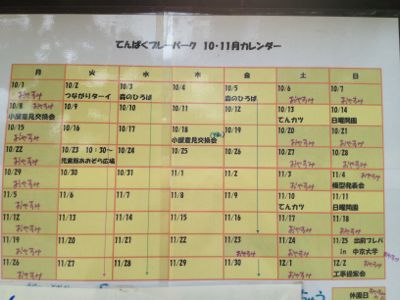 てんぱくプレーパーク 10・11月カレンダー
月 火 水 木 金 土 日
10/1 10/2 10/3 10/4 10/5 10/6 10/7
おやすみ つながりターイ 森のひろば 森のひろば おやすみ おやすみ
10/8 10/9 10/10 10/11 10/12 10/13 10/14
おやすみ 小屋意見交換会 てんカツ 日曜開園
10/15 10/16 10/17 10/18 10/19 10/20 10/21
おやすみ 小屋意見交換会 おやすみ おやすみ
10/22 10/23 10:30～ 10/24 10/25 10/26 10/27 10/28
おやすみ 児童館あおぞら広場 おやすみ おやすみ
10/29 10/30 10/31 11/1 11/2 11/3 11/4
おやすみ おやすみ おやすみ
11/5 11/6 11/7 11/8 11/9 11/10 11/11
おやすみ てんカツ 日曜開園
11/12 11/13 11/14 11/15 11/16 11/17 11/18
おやすみ おやすみ おやすみ
11/19 11/20 11/21 11/22 11/23 11/24 11/25 出前プレパ
おやすみ おやすみ おやすみ in 中京大学
おやすみ
11/26 11/27 11/28 11/29 11/30 12/1 12/2
おやすみ おやすみ おやすみ 工事提案会
休園日